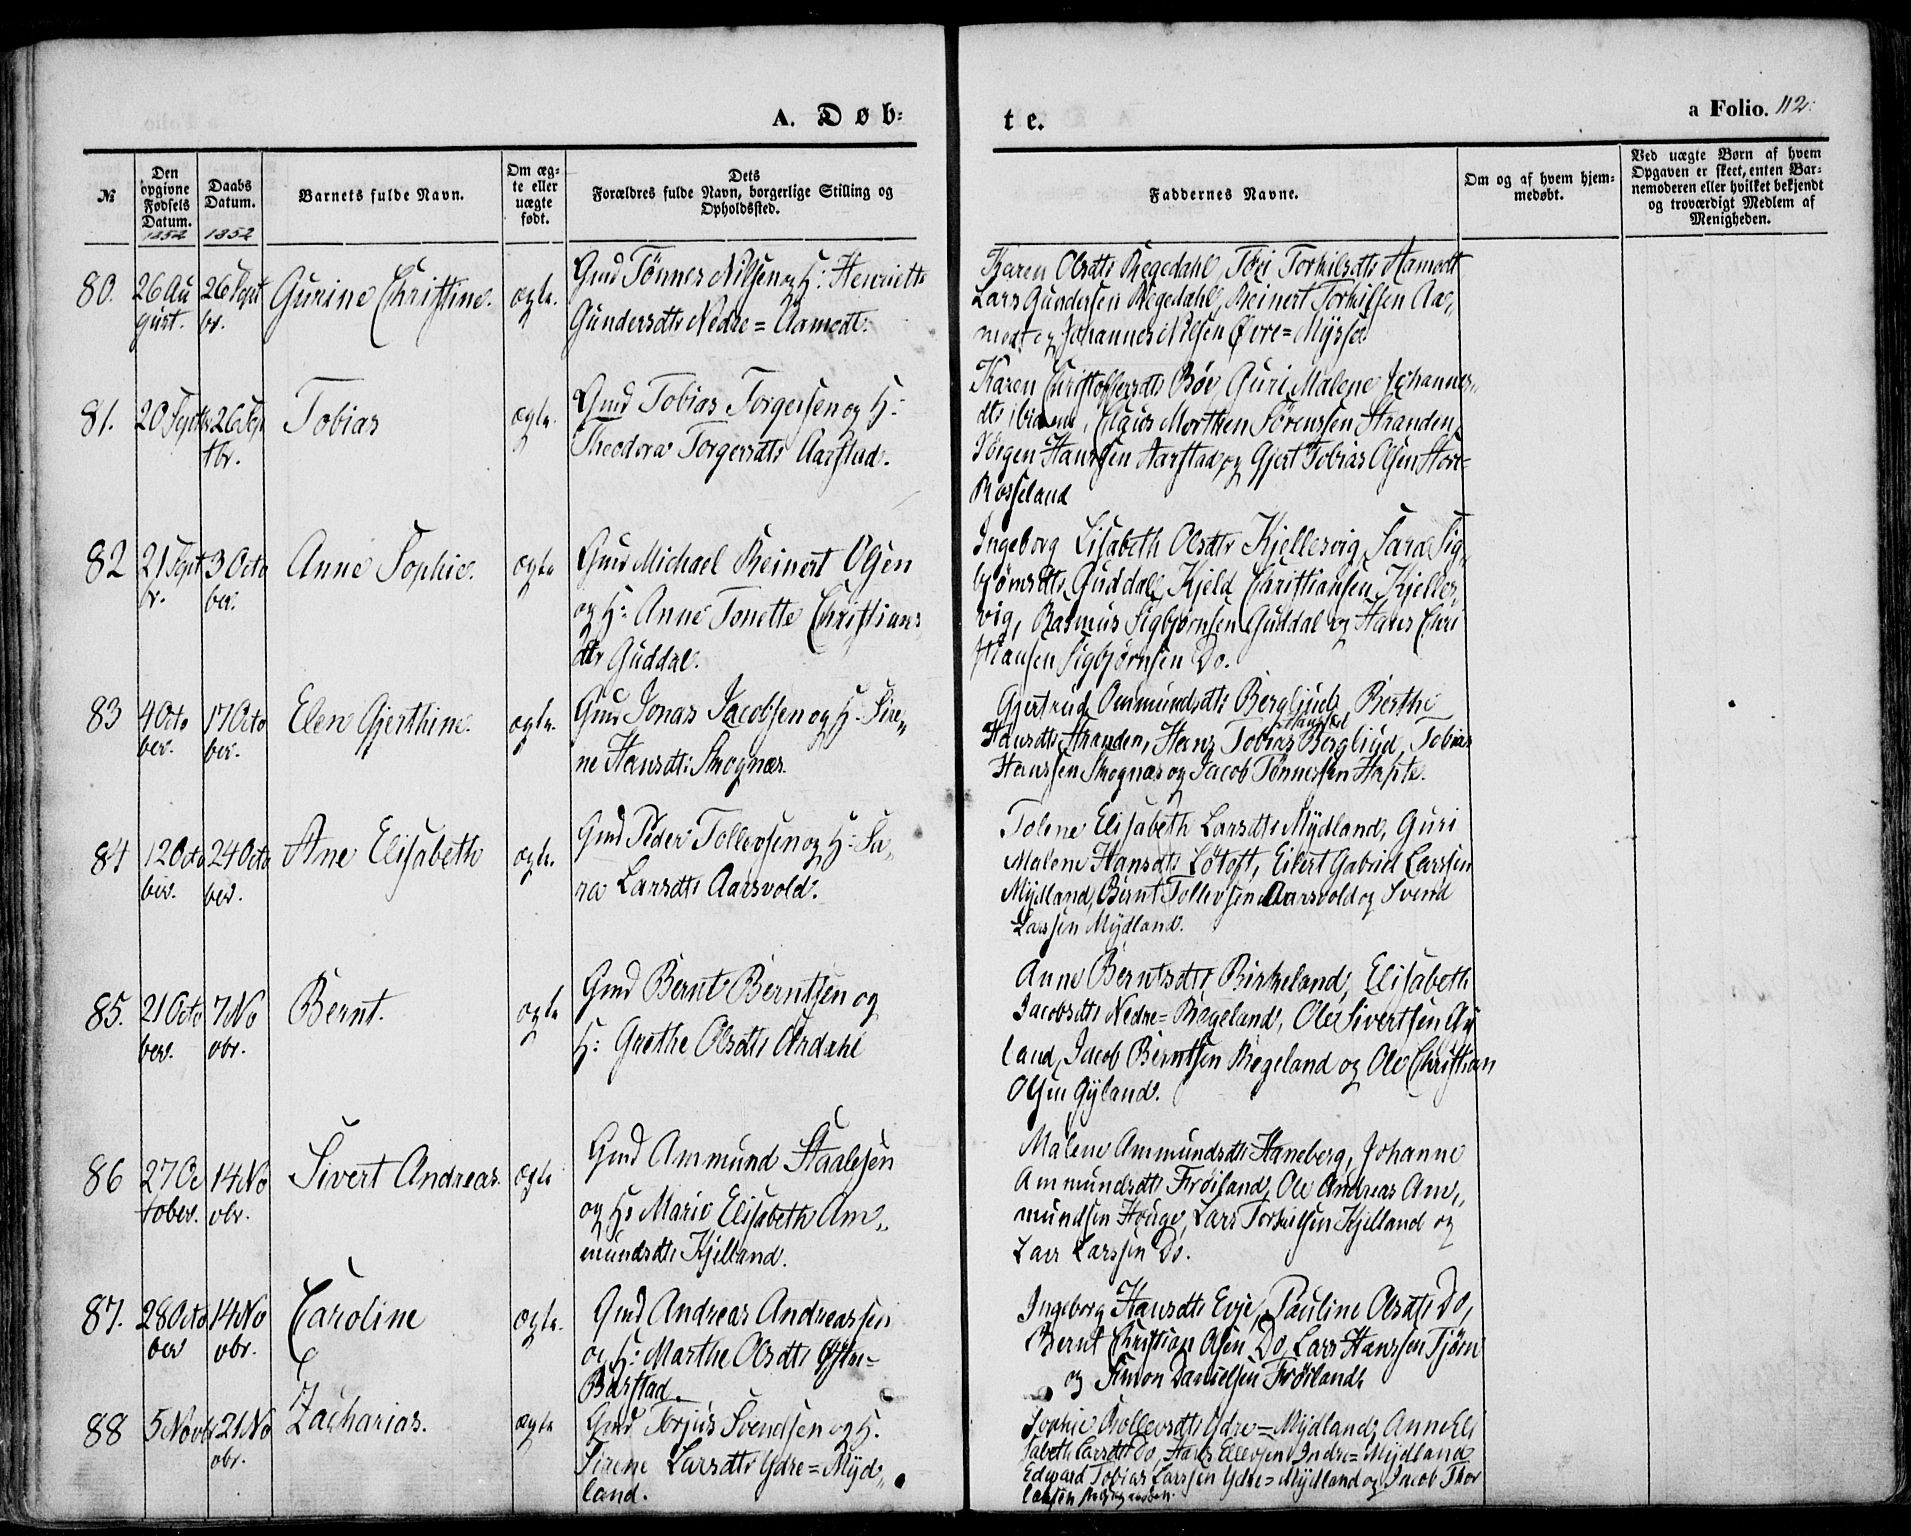 A. Døb:
te.
a Folio. 112.
№
Den opgivne Fødsels Datum. 1852
Daabs Datum. 1852
Barnets fulde Navn.
Om æg-
te eller
uægte
født.
Dets
Forældres fulde Navn, borgerlige Stilling og
Opholdssted.
Faddernes Navne.
Om og af hvem hjem-
medøbt.
Ved uægte Børn af hvem
Opgaven er skeet, enten Bar-
nemoderen eller hvilket bekjendt
og troværdigt Medlem af
Menigheden.
80.
26 Au
gust.
26 Sept
br.
Gurine Christine.
ægte.
Gmd Tønnes Nilsen og H: Henriette
Gundersdtr Nedre=Aamodt.
Karen Olsdtr Regedahl, Tori Torkilsdtr Aamodt
Lars Gundersen Regedahl, Reinert Torkilsen Aa„
modt og Johannes Nilsen Øvre=Mysse
81.
20 Septbr
26 Sep
tbr.
Tobias
ægte.
Gmd Tobias Torgersen og H:
Theodora Torgersdtr Aarstad.
Karen Christoffersdtr Bøe, Guri Malene Johannes„
dtr ibidem, Claus Morthen Sørensen Stranden,
Jørgen Hanssen Aarstad og Gjert Tobias Olsen Store=
Rosseland
82
21 Sept
br.
3 Octo
ber.
Anne Sophie.
ægte
Gmd Michael Reinert Olsen
og H: Anne Tonette Christians
dtr Guddal.
Ingeborg Lisabeth Olsdtr Kjellesvig, Sara Sig„
bjørnsdtr Guddal, Kjeld Christiansen Kjelles„
vig, Rasmus Sigbjørnsen Guddal og Hans Chri
stiansen Sigbjørnsen Do.
83
4 Octo
ber.
17 Octo
ber.
Elen Gjerthine.
ægte.
Gmd Jonas Jacobsen og H: Sire„
ne Hansdtr Skognæs.
Gjertrud Ommundsdtr Bergliud, Berthe
Hansdtr Stranden, Hans Tobias Bergliud, Tobias
Hanssen Skognæs og Jacob Tønnessen Hafte.
84
12 Octo
ber.
24 Octo
ber.
Ane Elisabeth
ægte.
Gmd Peder Tollevsen og H: Sa„
ra Larsdtr Aarsvold.
Tolene Elisabeth Larsdtr Mydland, Guri
Malene Hansdtr Løtoft, Eilert Gabriel Larssen
Mydland, Bernt Tollevsen Aarsvold og Svend
Larssen Mydland.
85.
21 Octo
ber.
7 No
vbr.
Bernt.
ægte
Gmd Bernt Berntsen og
H: Grethe Olsdtr Ardahl
Anne Berntsdtr Birkeland, Elisabeth
Jacobsdtr Nedre=Regeland, Ole Sivertsen Gy
land, Jacob Berntsen Regeland og Ole Christian
Olsen Gyland.
86
27 Oc
tober.
14 No
vbr.
Sivert Andreas.
ægte
Gmd Ammund Staalesen
og H: Marie Elisabeth Am„
mundsdtr Kjelland.
Malene Ammundsdtr Haneberg, Johanne
Ammundsdtr Frøiland, Ole Andreas Am„
mundsen Houge, Lars Torkilsen Kjelland og
Lars Larssen Do.
87.
28 Octo
ber
14 No
vbr.
Caroline
ægte.
Gmd Andreas Andreassen
og H: Marthe Olsdtr Østre=
Barstad.
Ingeborg Hansdtr Evje, Pauline Olsdtr Do,
Bernt Christian Olsen Do, Lars Hanssen Tjørn
og Simon Danielsen Frøiland.
88
5 Novbr
21 No
vbr.
Zacharias.
ægte
Gmd Torjus Svendsen og H.
Sirene Larsdtr Ydre=Myd„
land.
Sophie Rollevsdtr Ydre=Mydland, Anne Eli
sabeth Larsdtr Do, Hans Ellevsen Indre=Mydland
Edvard Tobias Larssen Ydre=Mydland og Jacob Thor